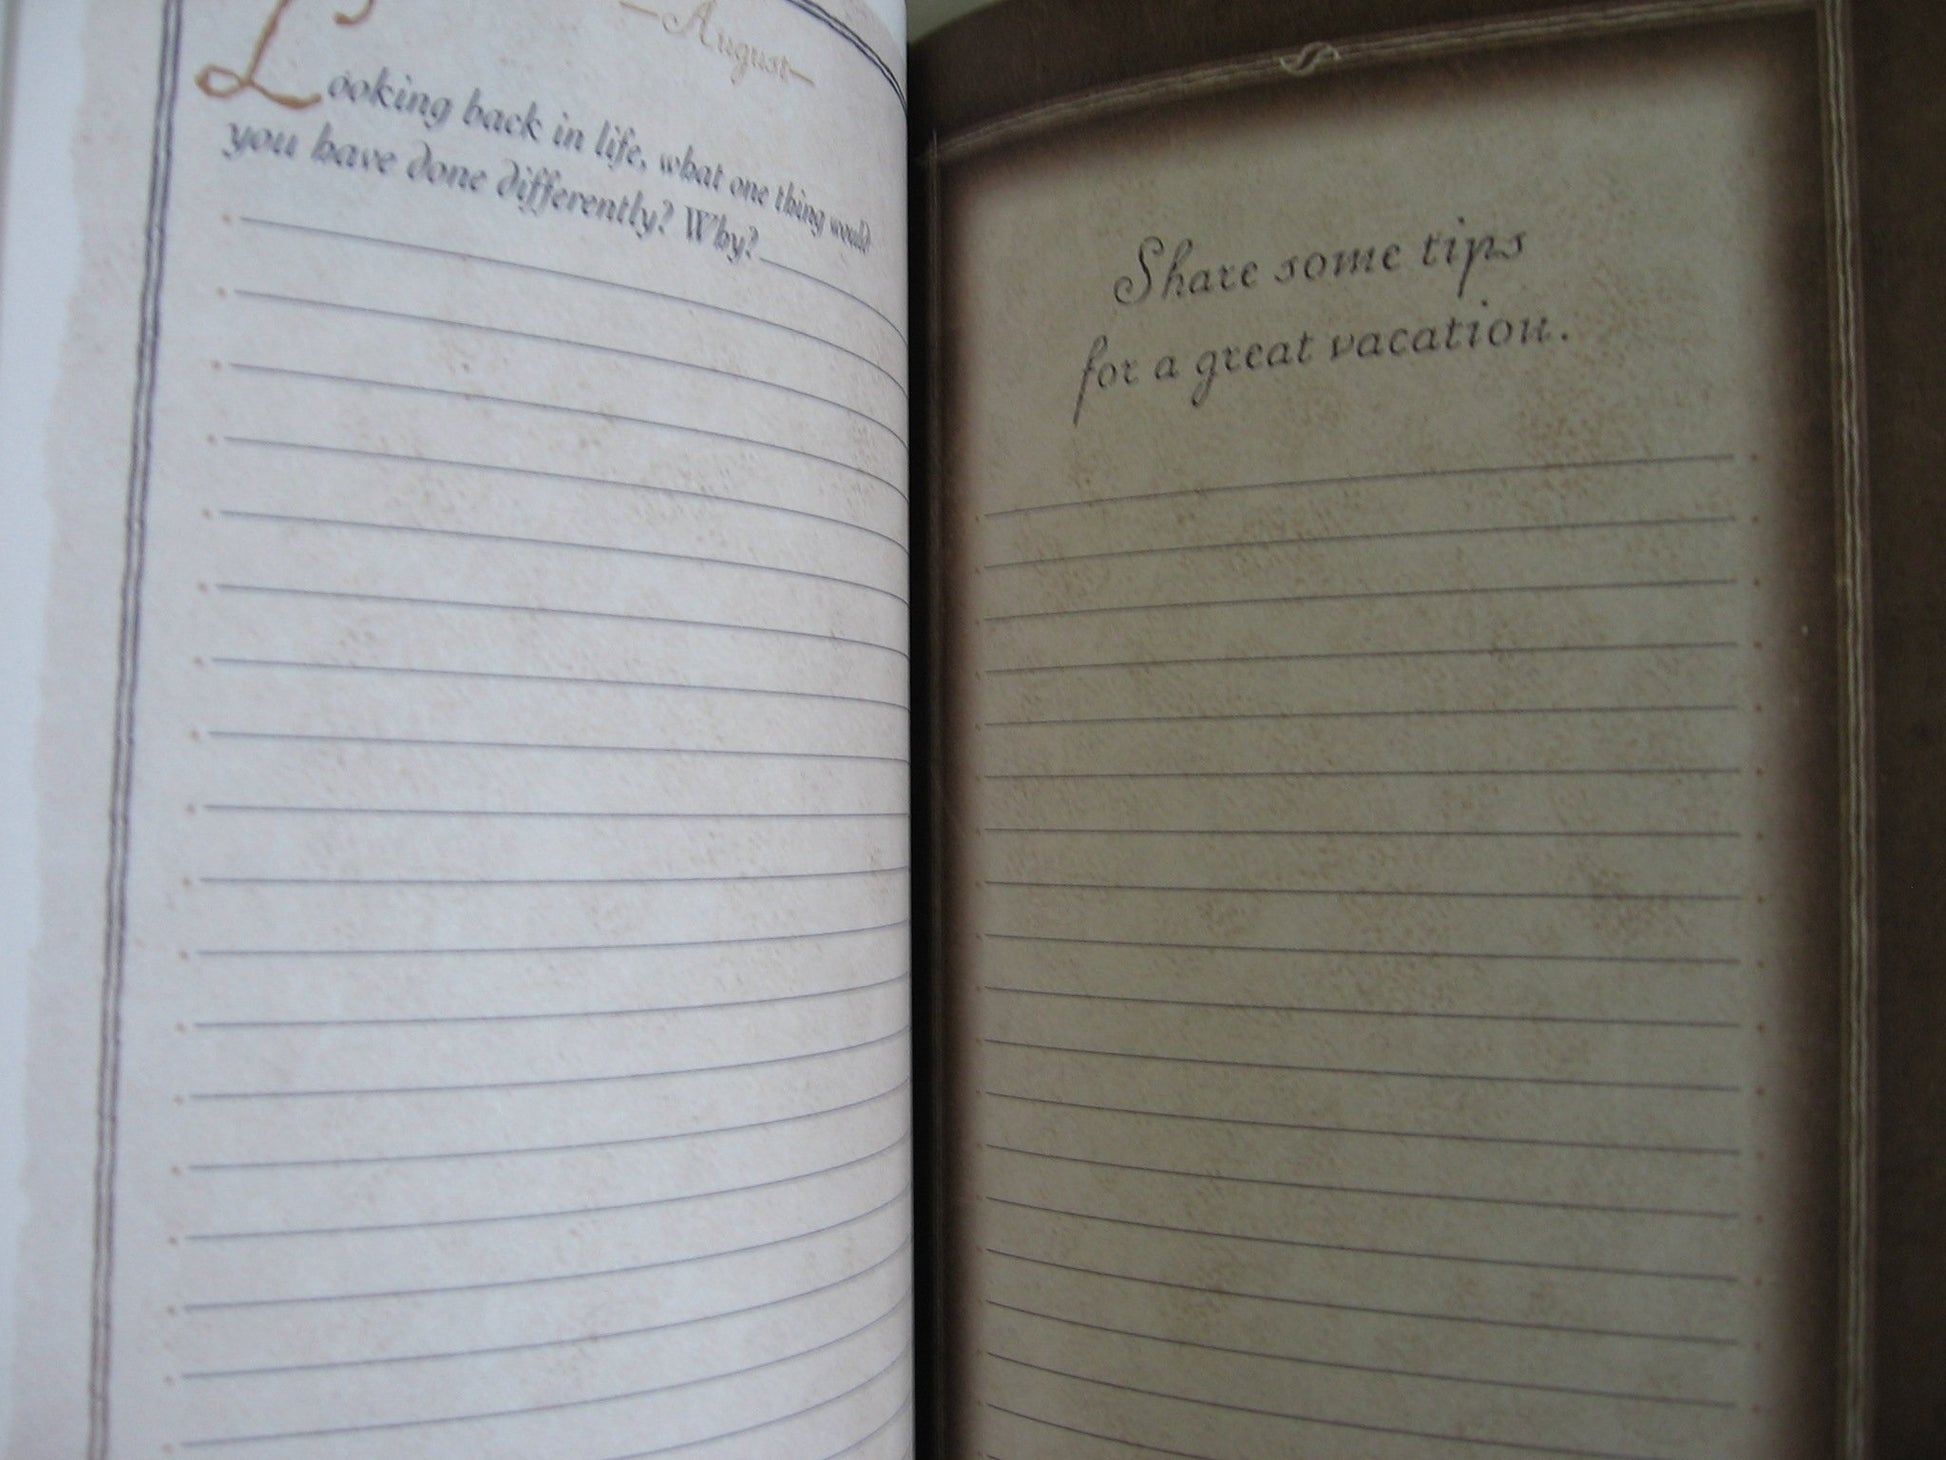 —August—
Looking back in life, what one thing would
you have done differently? Why?
Share some tips
for a great vacation.